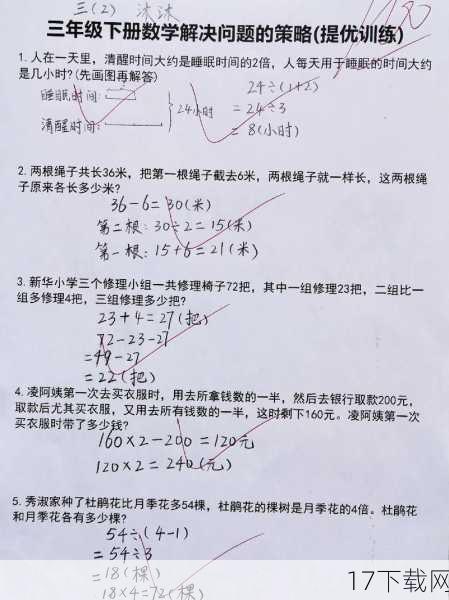 三(2) 沐沐
100
三年级下册数学解决问题的策略(提优训练)
1. 人在一天里，清醒时间大约是睡眠时间的2倍，人每天用于睡眠的时间大约
是几小时?(先画图再解答)
睡眠时间:
清醒时间:
24小时
24÷(1+2)
=24÷3
=8(小时)
2. 两根绳子共长36米，把第一根绳子截去6米，两根绳子就一样长，这两根绳
子原来各长多少米?
36-6=30(米)
第二根:30÷2=15(米)
第一根:15+6=21(米)
3. 新华小学三个修理小组一共修理椅子72把，其中一组修理23把，二组比一
组多修理4把，三组修理多少把?
23+4=27(把)
72-23-27
=49-27
=22(把)
4. 凌阿姨第一次去买衣服时，用去所拿钱数的一半，然后去银行取款200元，
取款后尤其买衣服，又用去所有钱数的一半，这时剩下160元。凌阿姨第一次
买衣服时带了多少钱?
160×2-200=120元
120×2=240(元)
5. 秀淑家种了杜鹃花比月季花多54棵，杜鹃花的棵树是月季花的4倍。杜鹃花
和月季花各有多少棵?
54÷(4-1)
=54÷3
=18(棵)
18×4=72(棵)
17下载网